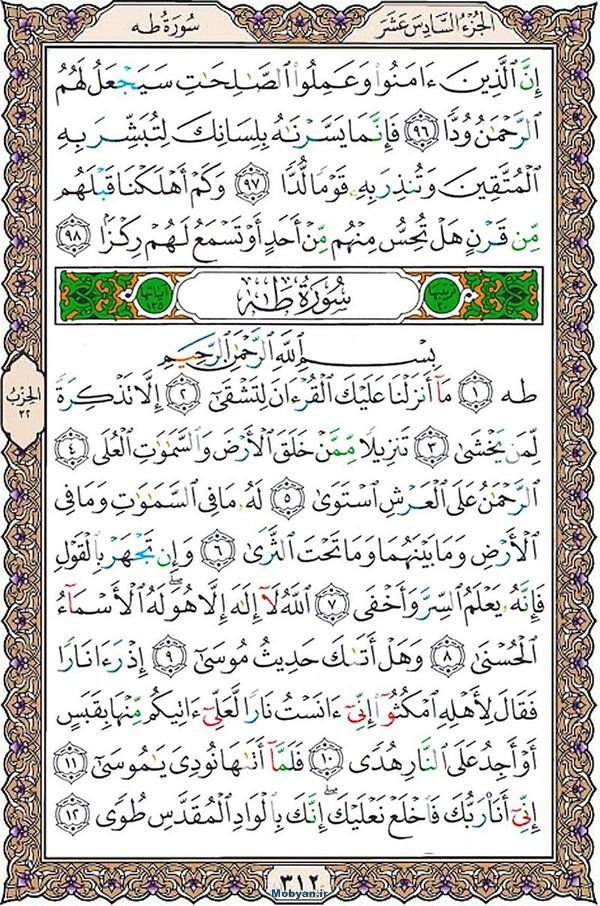 الجُزءُ السَّادِس عَشَر
سُورَةُ طه
إِنَّ الَّذِينَ ءَامَنُوا وَعَمِلُوا الصَّالِحَاتِ سَيَجْعَلُ لَهُمُ
الرَّحْمَانُ وُدًّا ٩٦ فَإِنَّمَا يَسَّرْنَاهُ بِلِسَانِكَ لِتُبَشِّرَ بِهِ
الْمُتَّقِينَ وَتُنْذِرَ بِهِ قَوْمًا لُدًّا ٩٧ وَكَمْ أَهْلَكْنَا قَبْلَهُمْ
مِن قَرْنٍ هَلْ تُحِسُّ مِنْهُم مِنْ أَحَدٍ أَوْ تَسْمَعُ لَهُمْ رِكْزًا ٩٨
ترتيبها ٢٠
سُورَةُ طه
آياتها ١٣٥
بِسْمِ اللَّهِ الرَّحْمَٰنِ الرَّحِيمِ
طه ١ مَا أَنْزَلْنَا عَلَيْكَ الْقُرْءَانَ لِتَشْقَىٰ ٢ إِلَّا تَذْكِرَةً
لِمَن يَخْشَىٰ ٣ تَنْزِيلًا مِمَّنْ خَلَقَ الْأَرْضَ وَالسَّمَاوَاتِ الْعُلَى ٤
الرَّحْمَانُ عَلَى الْعَرْشِ اسْتَوَىٰ ٥ لَهُ مَا فِي السَّمَاوَاتِ وَمَا فِي
الْأَرْضِ وَمَا بَيْنَهُمَا وَمَا تَحْتَ الثَّرَىٰ ٦ وَإِن تَجْهَرْ بِالْقَوْلِ
فَإِنَّهُ يَعْلَمُ السِّرَّ وَأَخْفَى ٧ اللَّهُ لَا إِلَهَ إِلَّا هُوَ لَهُ الْأَسْمَاءُ
الْحُسْنَىٰ ٨ وَهَلْ أَتَاكَ حَدِيثُ مُوسَىٰ ٩ إِذْ رَءَا نَارًا
فَقَالَ لِأَهْلِهِ امْكُثُوا إِنِّي ءَانَسْتُ نَارًا لَعَلِّي ءَاتِيكُم مِنْهَا بِقَبَسٍ
أَوْ أَجِدُ عَلَى النَّارِ هُدًى ١٠ فَلَمَّا أَتَاهَا نُودِيَ يَامُوسَىٰ ١١
إِنِّي أَنَا رَبُّكَ فَاخْلَعْ نَعْلَيْكَ إِنَّكَ بِالْوَادِ الْمُقَدَّسِ طُوًى ١٢
الحِزْبُ
٣٢
٣١٢
Mobyan.ir